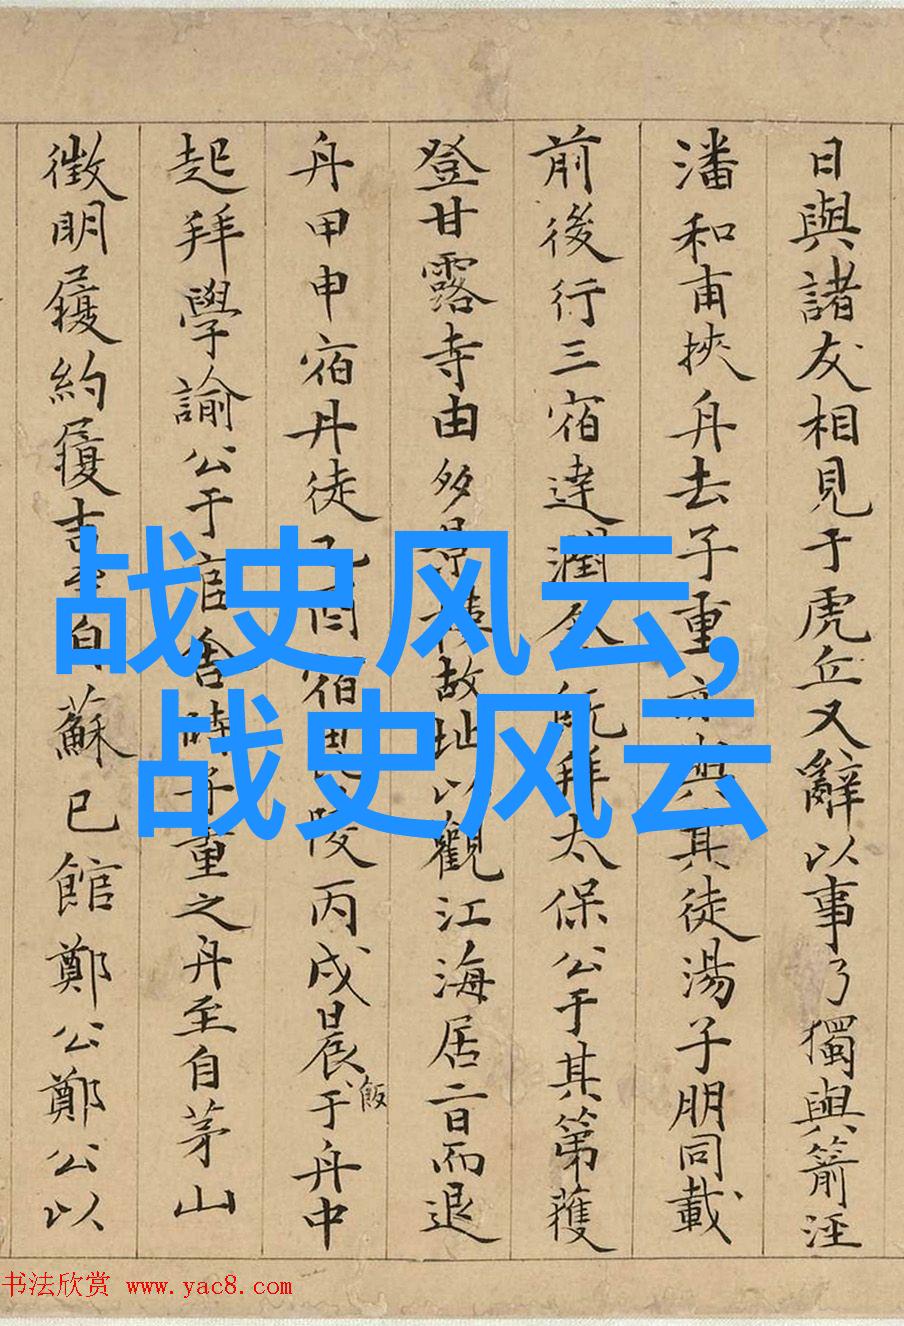 日與諸友相見于虎丘又辭以事乃獨與箭涇
潘和甫挾舟去子重亦與其徒湯子朋同載
前後行三宿達潤既拜太保公于其第獲
登甘露寺由多景樓故址以觀江海居二日而退
舟甲申宿丹徒乙酉宿毘陵丙戌晨飯于舟中
起拜學諭公于官舍時子重之舟至自茅山
徵明履約履吉至自蘇已館鄭公鄭公以
战史风云,
战史风云
书法欣赏 www.yac8.com